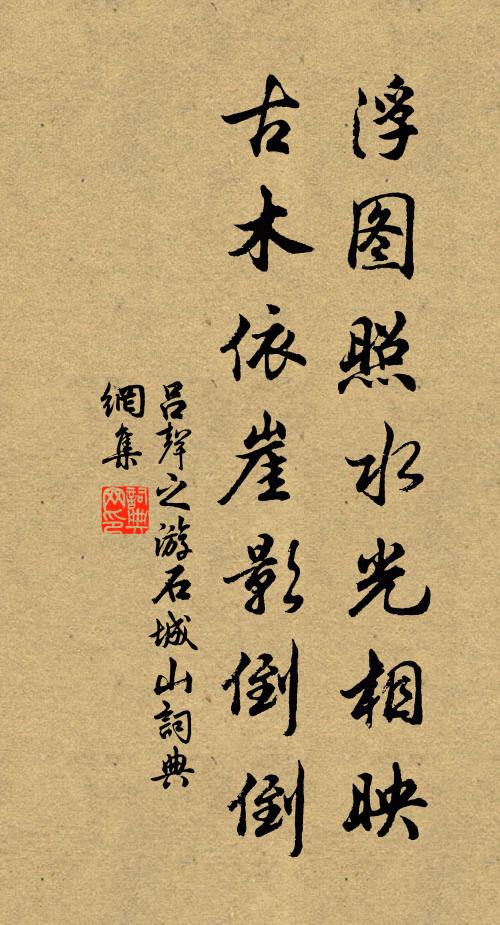 浮图照水光相映
古木依崖影倒倒
吕聲之游石城山詞典
網集
詞典
网印